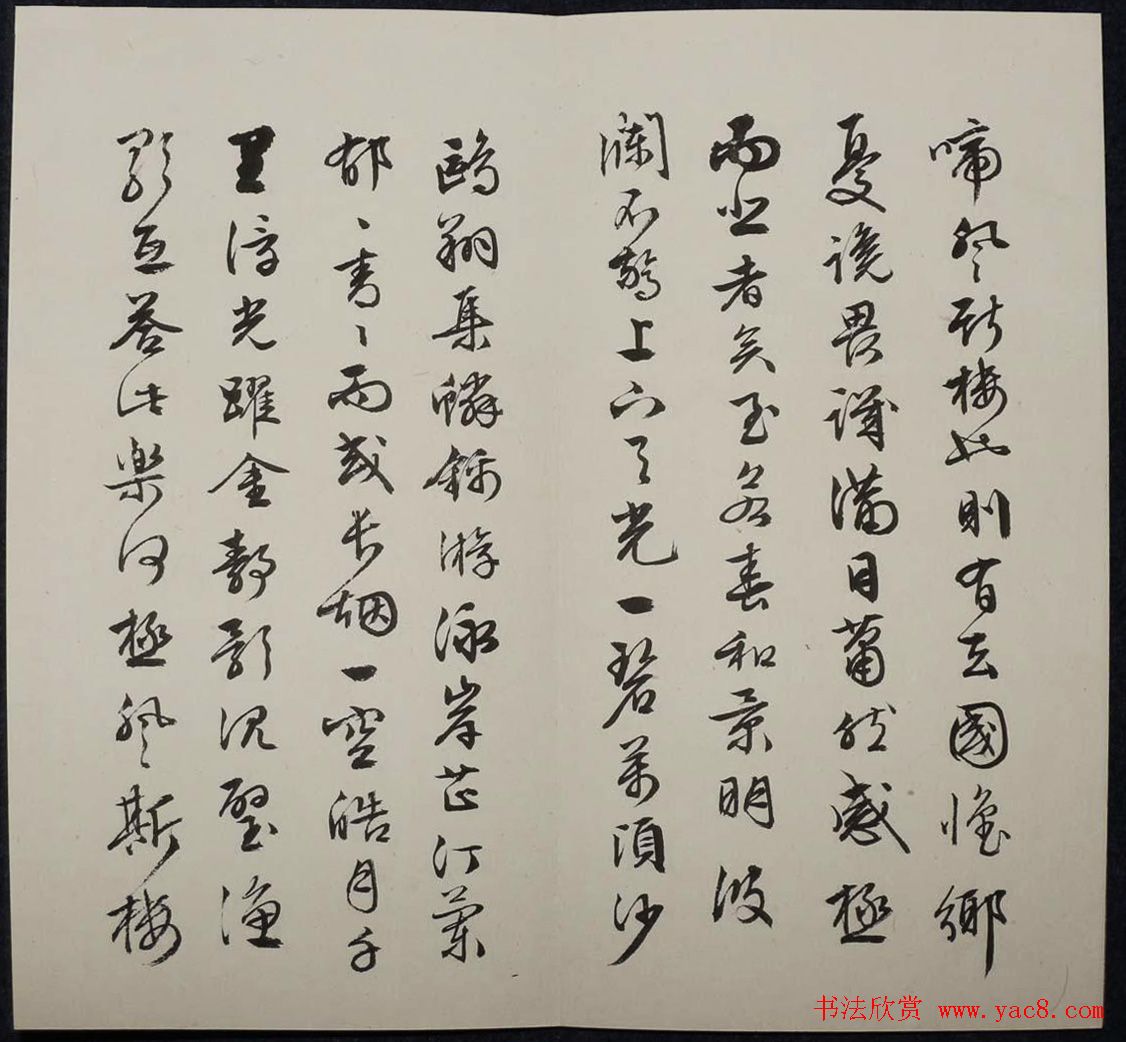 啼登斯樓也則有去國懷鄉
憂讒畏譏滿目蕭然感極
而悲者矣至若春和景明波
瀾不驚上下天光一碧萬頃沙
鷗翔集鱗錦游泳岸芷汀蘭
郁〻青〻而或長烟一空皓月千
里浮光躍金靜影沉璧漁
歌互答此樂何極登斯樓
书法欣赏 www.yac8.com